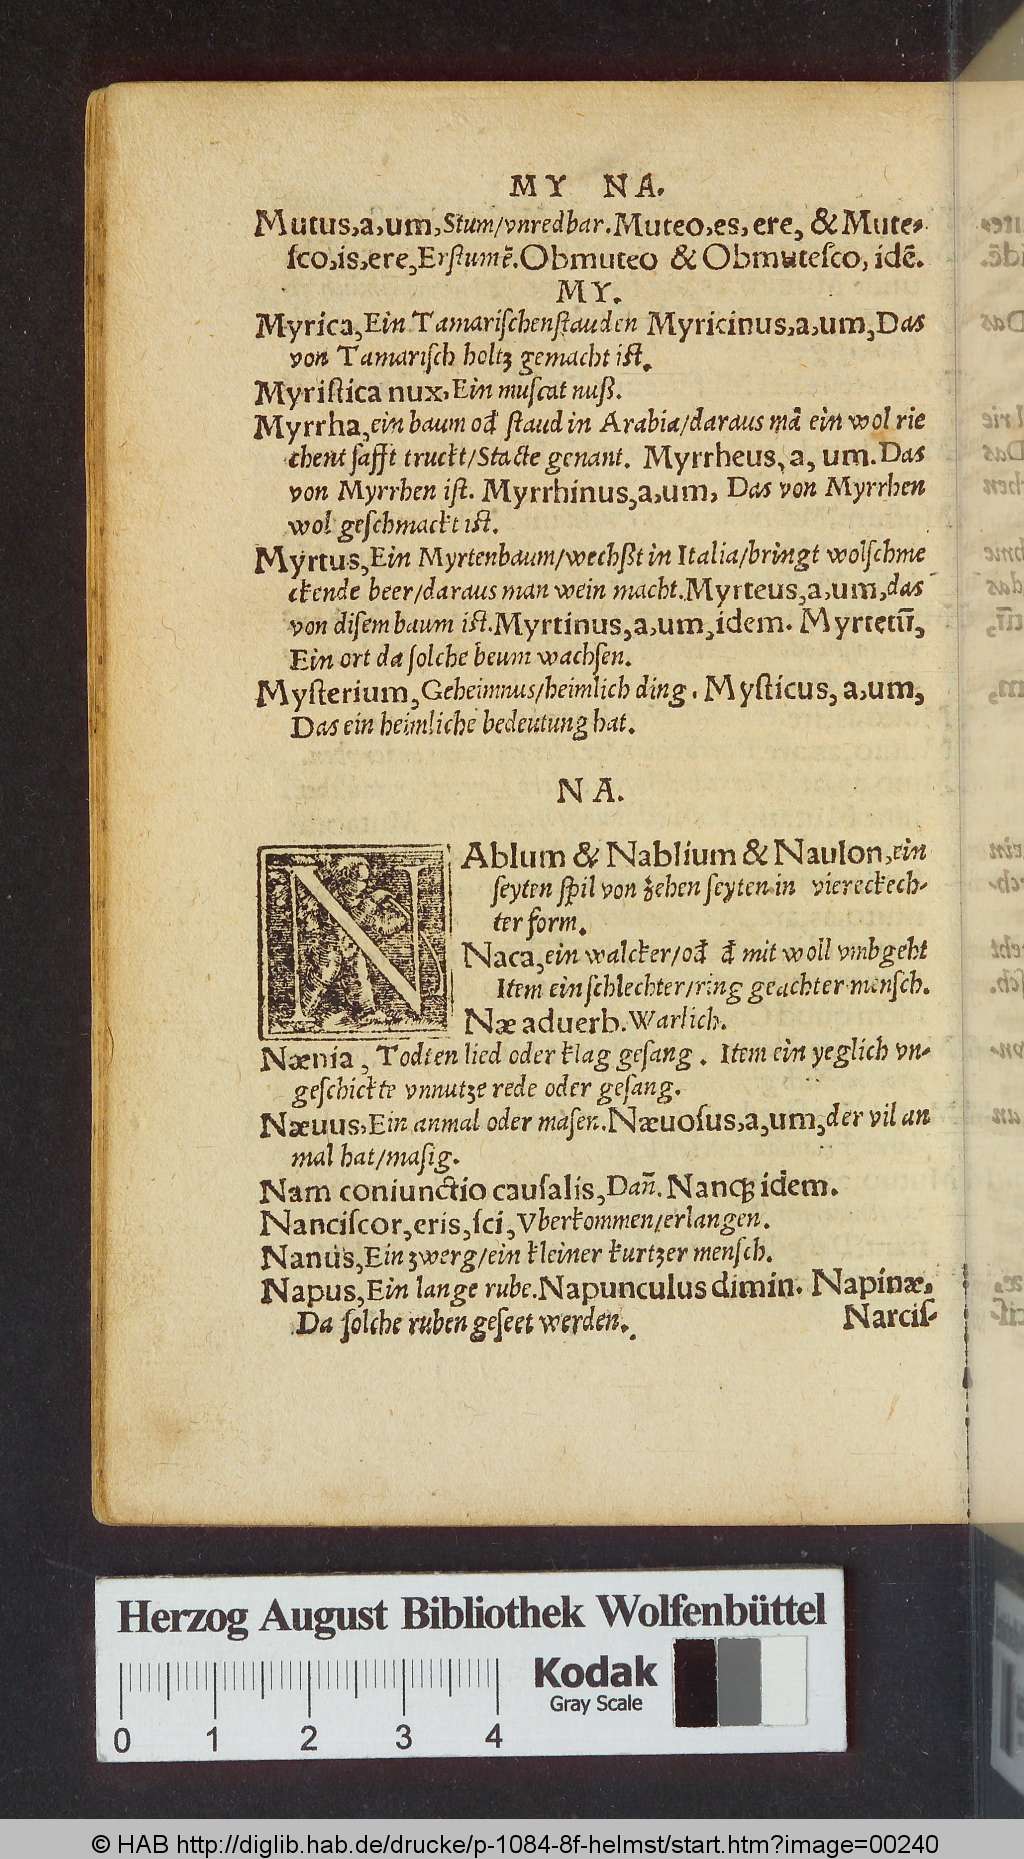 MY NA.
Mutus,a,um,Stum/vnredbar.Muteo,es,ere, & Mute-
ſco,is,ere,Erſtumẽ.Obmuteo & Obmuteſco, idẽ.
MY.
Myrica,Ein Tamariſchenſtauden Myricinus,a,um,Das
von Tamariſch holtz gemacht iſt.
Myriſtica nux,Ein muſcat nuß.
Myrrha,ein baum od' ſtaud in Arabia/daraus mã ein wol rie
chent ſafft truckt/Stacte genant. Myrrheus, a, um.Das
von Myrrhen iſt. Myrrhinus,a,um, Das von Myrrhen
wol geſchmackt iſt.
Myrtus,Ein Myrtenbaum/wechſt in Italia/bringt wolſchme
ckende beer/daraus man wein macht.Myrteus,a,um,das
von diſem baum iſt.Myrtinus,a,um,idem. Myrtetũ,
Ein ort da ſolche beum wachſen.
Myſterium,Geheimnus/heimlich ding. Myſticus, a,um,
Das ein heimliche bedeutung hat.
NA.
NAblum & Nablium & Naulon,ein
ſeyten ſpil von zehen ſeyten in viereckech-
ter form.
Naca,ein walcker/od' d' mit woll vmbgeht
Item ein ſchlechter/ring geachter menſch.
Næ aduerb.Warlich.
Nænia, Todten lied oder klag geſang. Item ein yeglich vn-
geſchickte vnnutze rede oder geſang.
Næuus,Ein anmal oder maſen.Næuoſus,a,um,der vil an
mal hat/maſig.
Nam coniunctio cauſalis,Dañ.Nanqꝫ idem.
Nanciſcor,eris,ſci,Vberkommen/erlangen.
Nanus,Ein zwerg/ein kleiner kurtzer menſch.
Napus,Ein lange rube.Napunculus dimin. Napinæ,
Da ſolche ruben geſeet werden.
Narciſ-
Herzog August Bibliothek Wolfenbüttel
Kodak
Gray Scale
0 1 2 3 4
© HAB http://diglib.hab.de/drucke/p-1084-8f-helmst/start.htm?image=00240